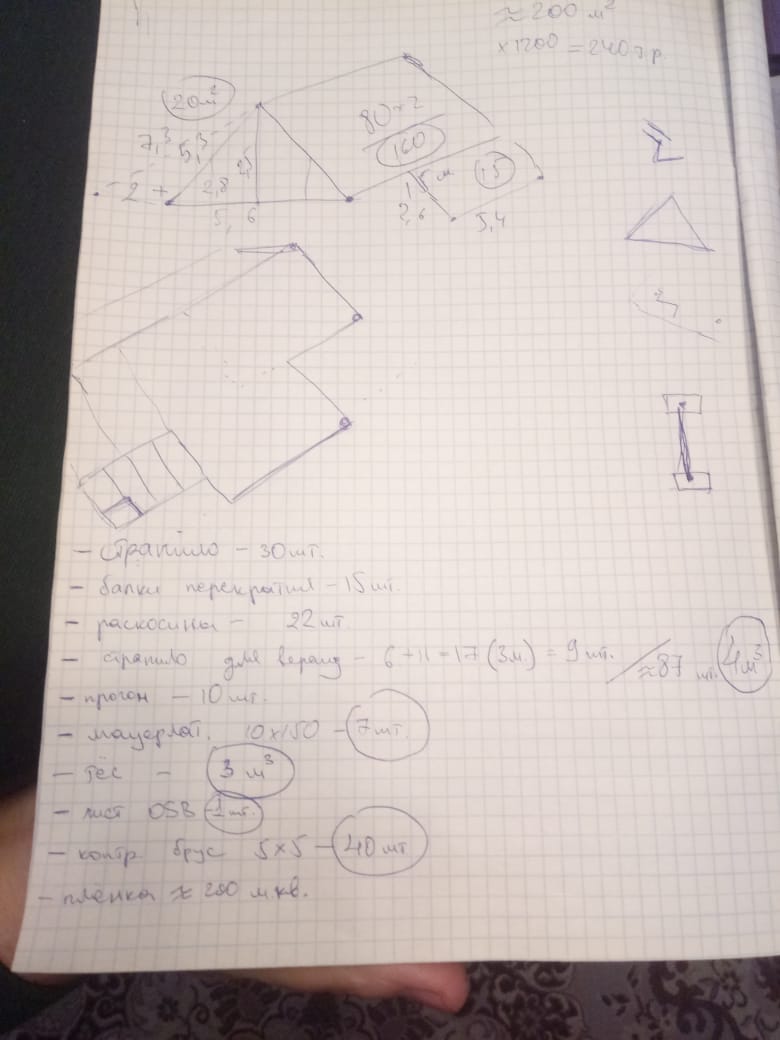 ≈ 200 м²
х1200 = 240 т.р.
20м²
80×2
7,3
5,3
160
2,8
15 м
15
2
5,6
2,6
5,4
- страпило - 30шт.
- балки перекрытия - 15шт.
- раскосины - 22шт.
- страпило для веранд - 6+11=17(3м.) = 9шт. ≈87 шт. 4м³
- прогон - 10шт.
- мауерлат. 10х150 - 7шт.
- тёс - 3 м³
- лист OSB - 1шт.
- контр брус 5х5 - 40шт
- пленка ≈ 200 м.кв.